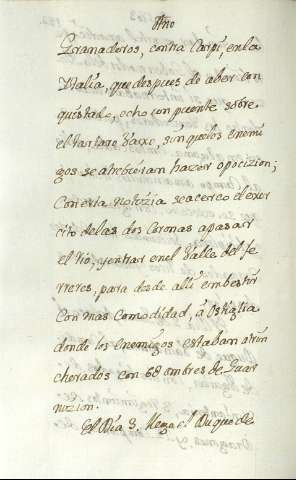 Año
Granaderos, contra Carpi, en la
Italia, que despues de aber con
quistado, echo con puente sobre
el tartaro baxo, sin que los Enemi
gos se atribieran hazer opozizion;
Con esta notizia se acerco el exer
cito de las dos Coronas a pasar
el rio, y entrar en el Valle del fe
rreres, para desde alli embestir
Con mas Comodidad, á Ostiglia
donde los enemigos estaban atrin
cherados con 68 ombres de Guar
nizion.
El Dia 3. llega el Duque de